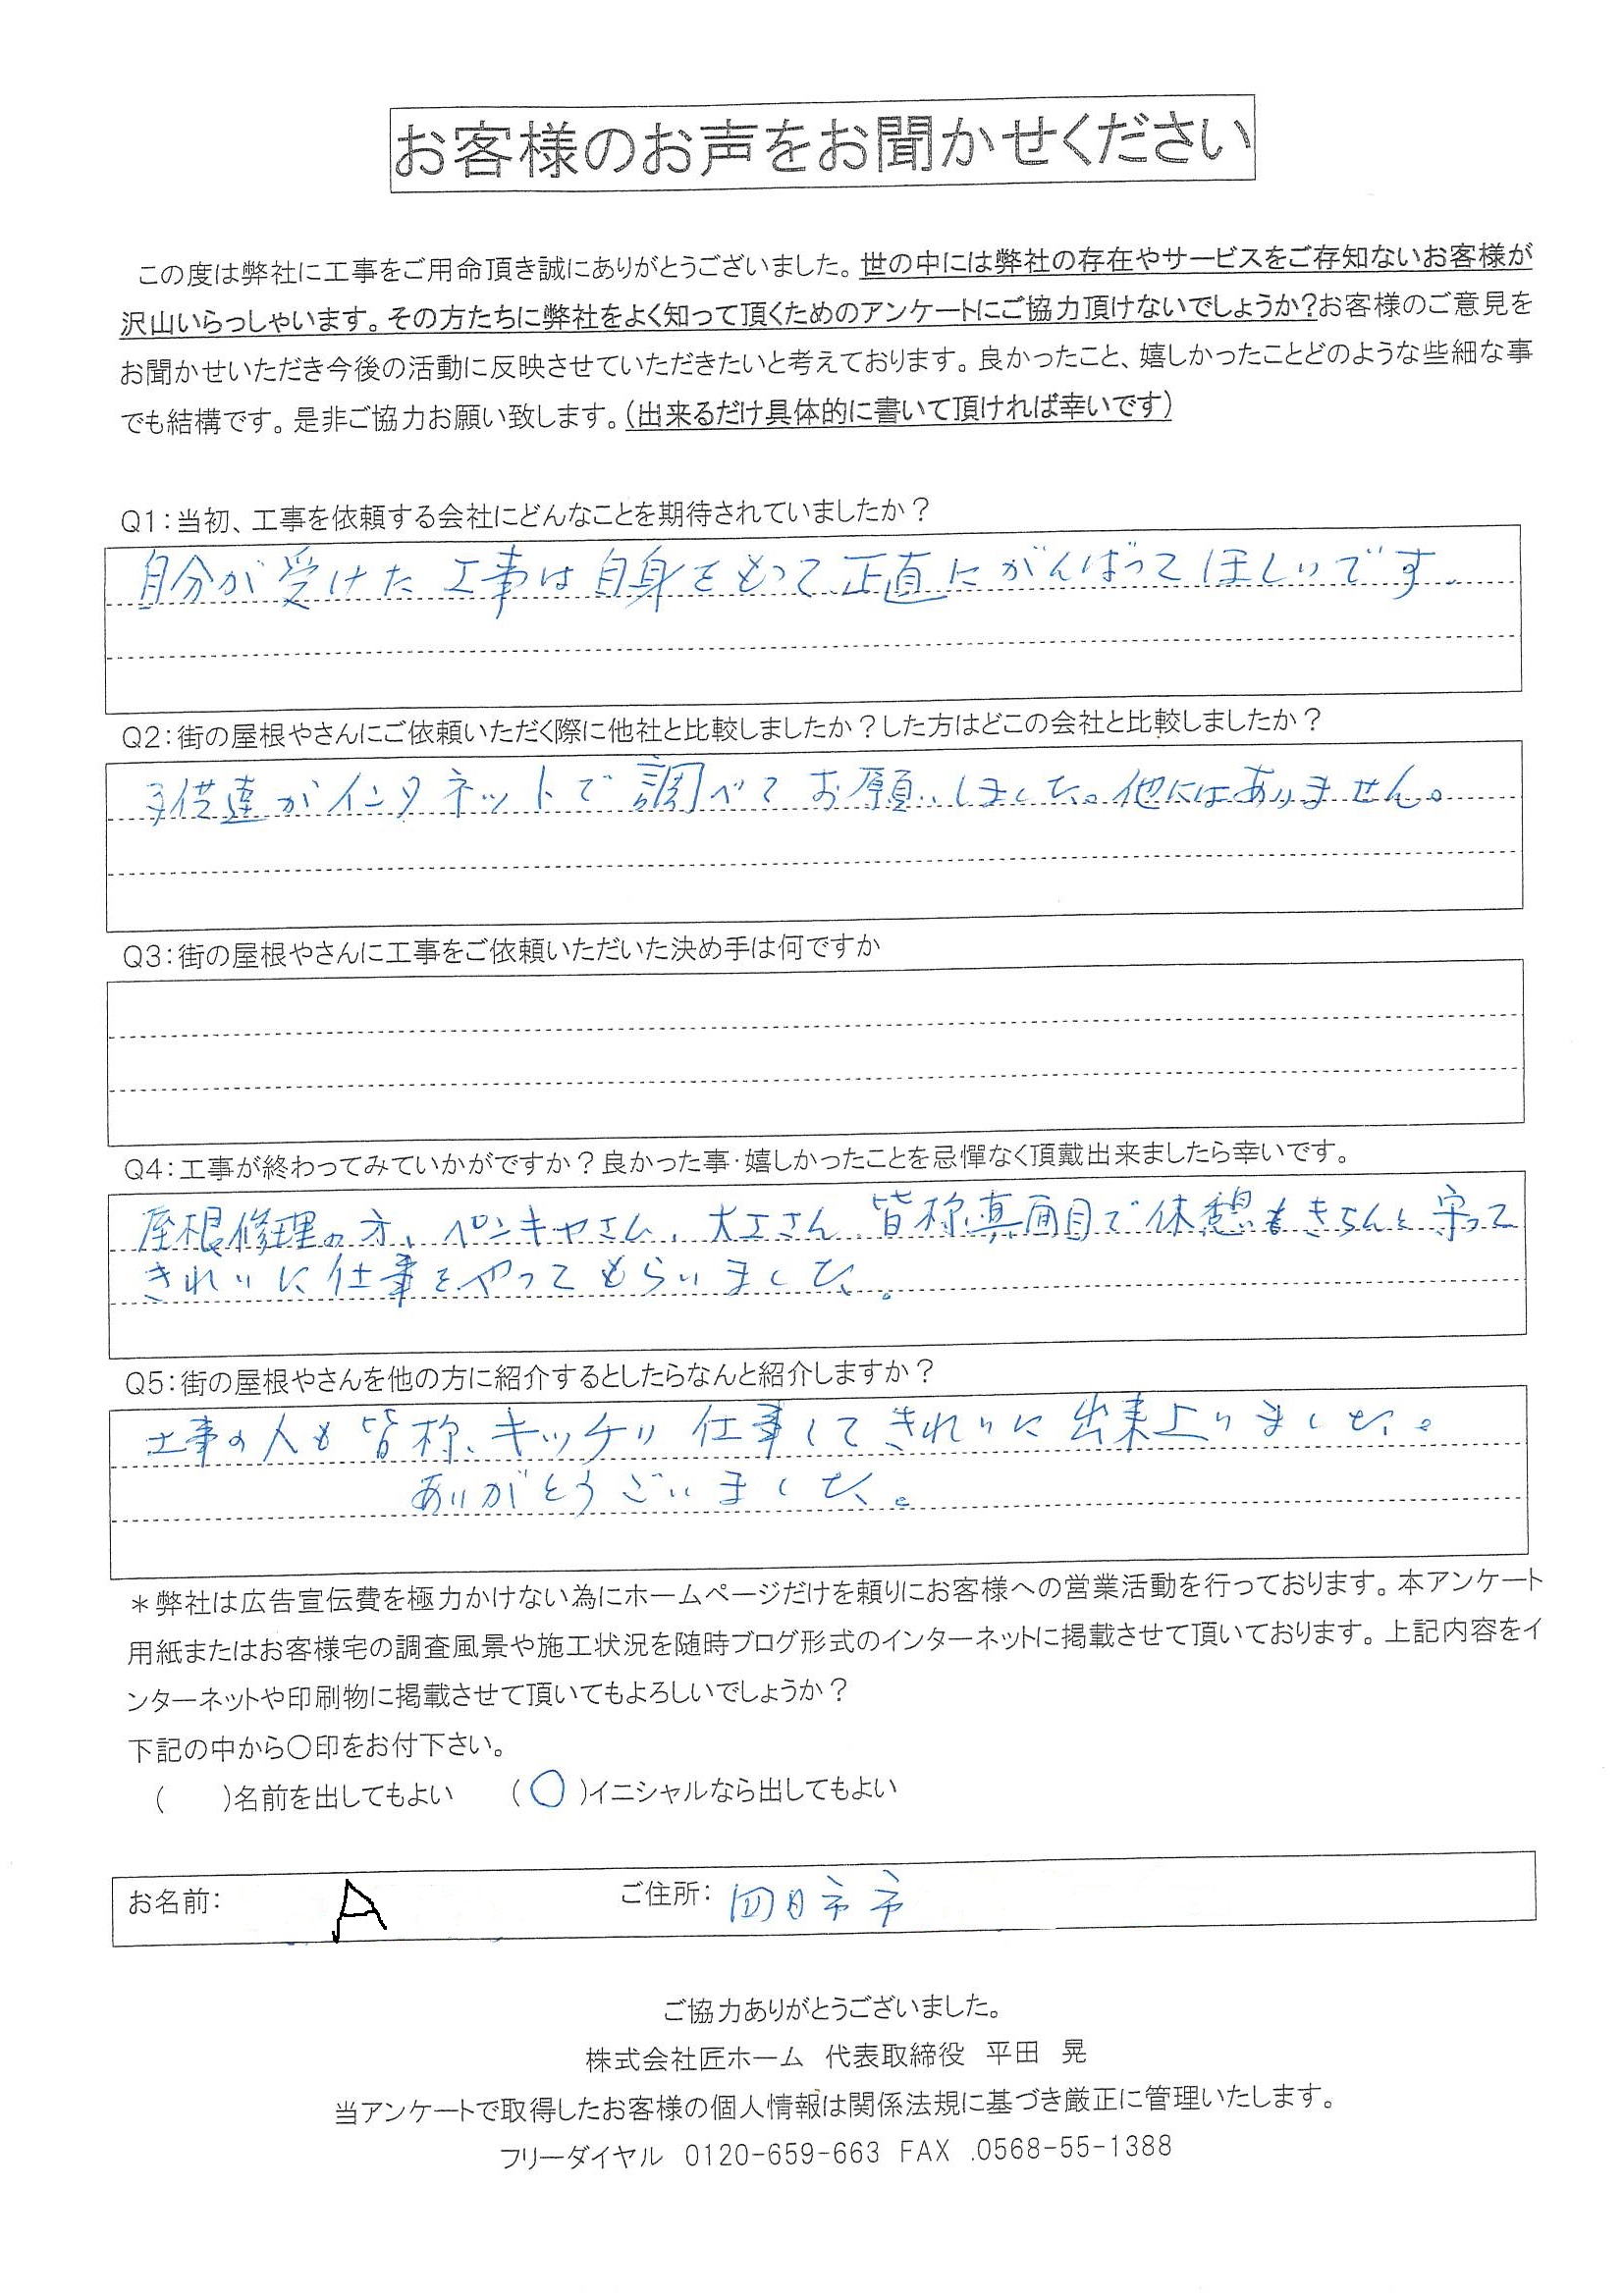 お客様のお声をお聞かせください
この度は弊社に工事をご用命頂き誠にありがとうございました。世の中には弊社の存在やサービスをご存知ないお客様が
沢山いらっしゃいます。その方たちに弊社をよく知って頂くためのアンケートにご協力頂けないでしょうか?お客様のご意見を
お聞かせいただき今後の活動に反映させていただきたいと考えております。良かったこと、嬉しかったことどのような些細な事
でも結構です。是非ご協力お願い致します。(出来るだけ具体的に書いて頂ければ幸いです)
Q1:当初、工事を依頼する会社にどんなことを期待されていましたか?
自分が受けた工事は自身をもって正直にがんばってほしいです。
Q2:街の屋根やさんにご依頼いただく際に他社と比較しましたか?した方はどこの会社と比較しましたか?
子供達がインタネットで調べてお願いしました。他にはありません。
Q3:街の屋根やさんに工事をご依頼いただいた決め手は何ですか
Q4:工事が終わってみていかがですか?良かった事・嬉しかったことを忌憚なく頂戴出来ましたら幸いです。
屋根修理の方、ペンキヤさん、大工さん、皆称真面目で休憩もきちんと守って
きれいに仕事をやってもらいました。
Q5:街の屋根やさんを他の方に紹介するとしたらなんと紹介しますか?
工事の人も皆称、キッチリ仕事してきれいに出来上りました。
ありがとうございました。
*弊社は広告宣伝費を極力かけない為にホームページだけを頼りにお客様への営業活動を行っております。本アンケート
用紙またはお客様宅の調査風景や施工状況を随時ブログ形式のインターネットに掲載させて頂いております。上記内容をイ
ンターネットや印刷物に掲載させて頂いてもよろしいでしょうか?
下記の中から〇印をお付下さい。
( )名前を出してもよい (〇)イニシャルなら出してもよい
お名前: A ご住所: 四日市市
ご協力ありがとうございました。
株式会社匠ホーム 代表取締役 平田 晃
当アンケートで取得したお客様の個人情報は関係法規に基づき厳正に管理いたします。
フリーダイヤル 0120-659-663 FAX .0568-55-1388